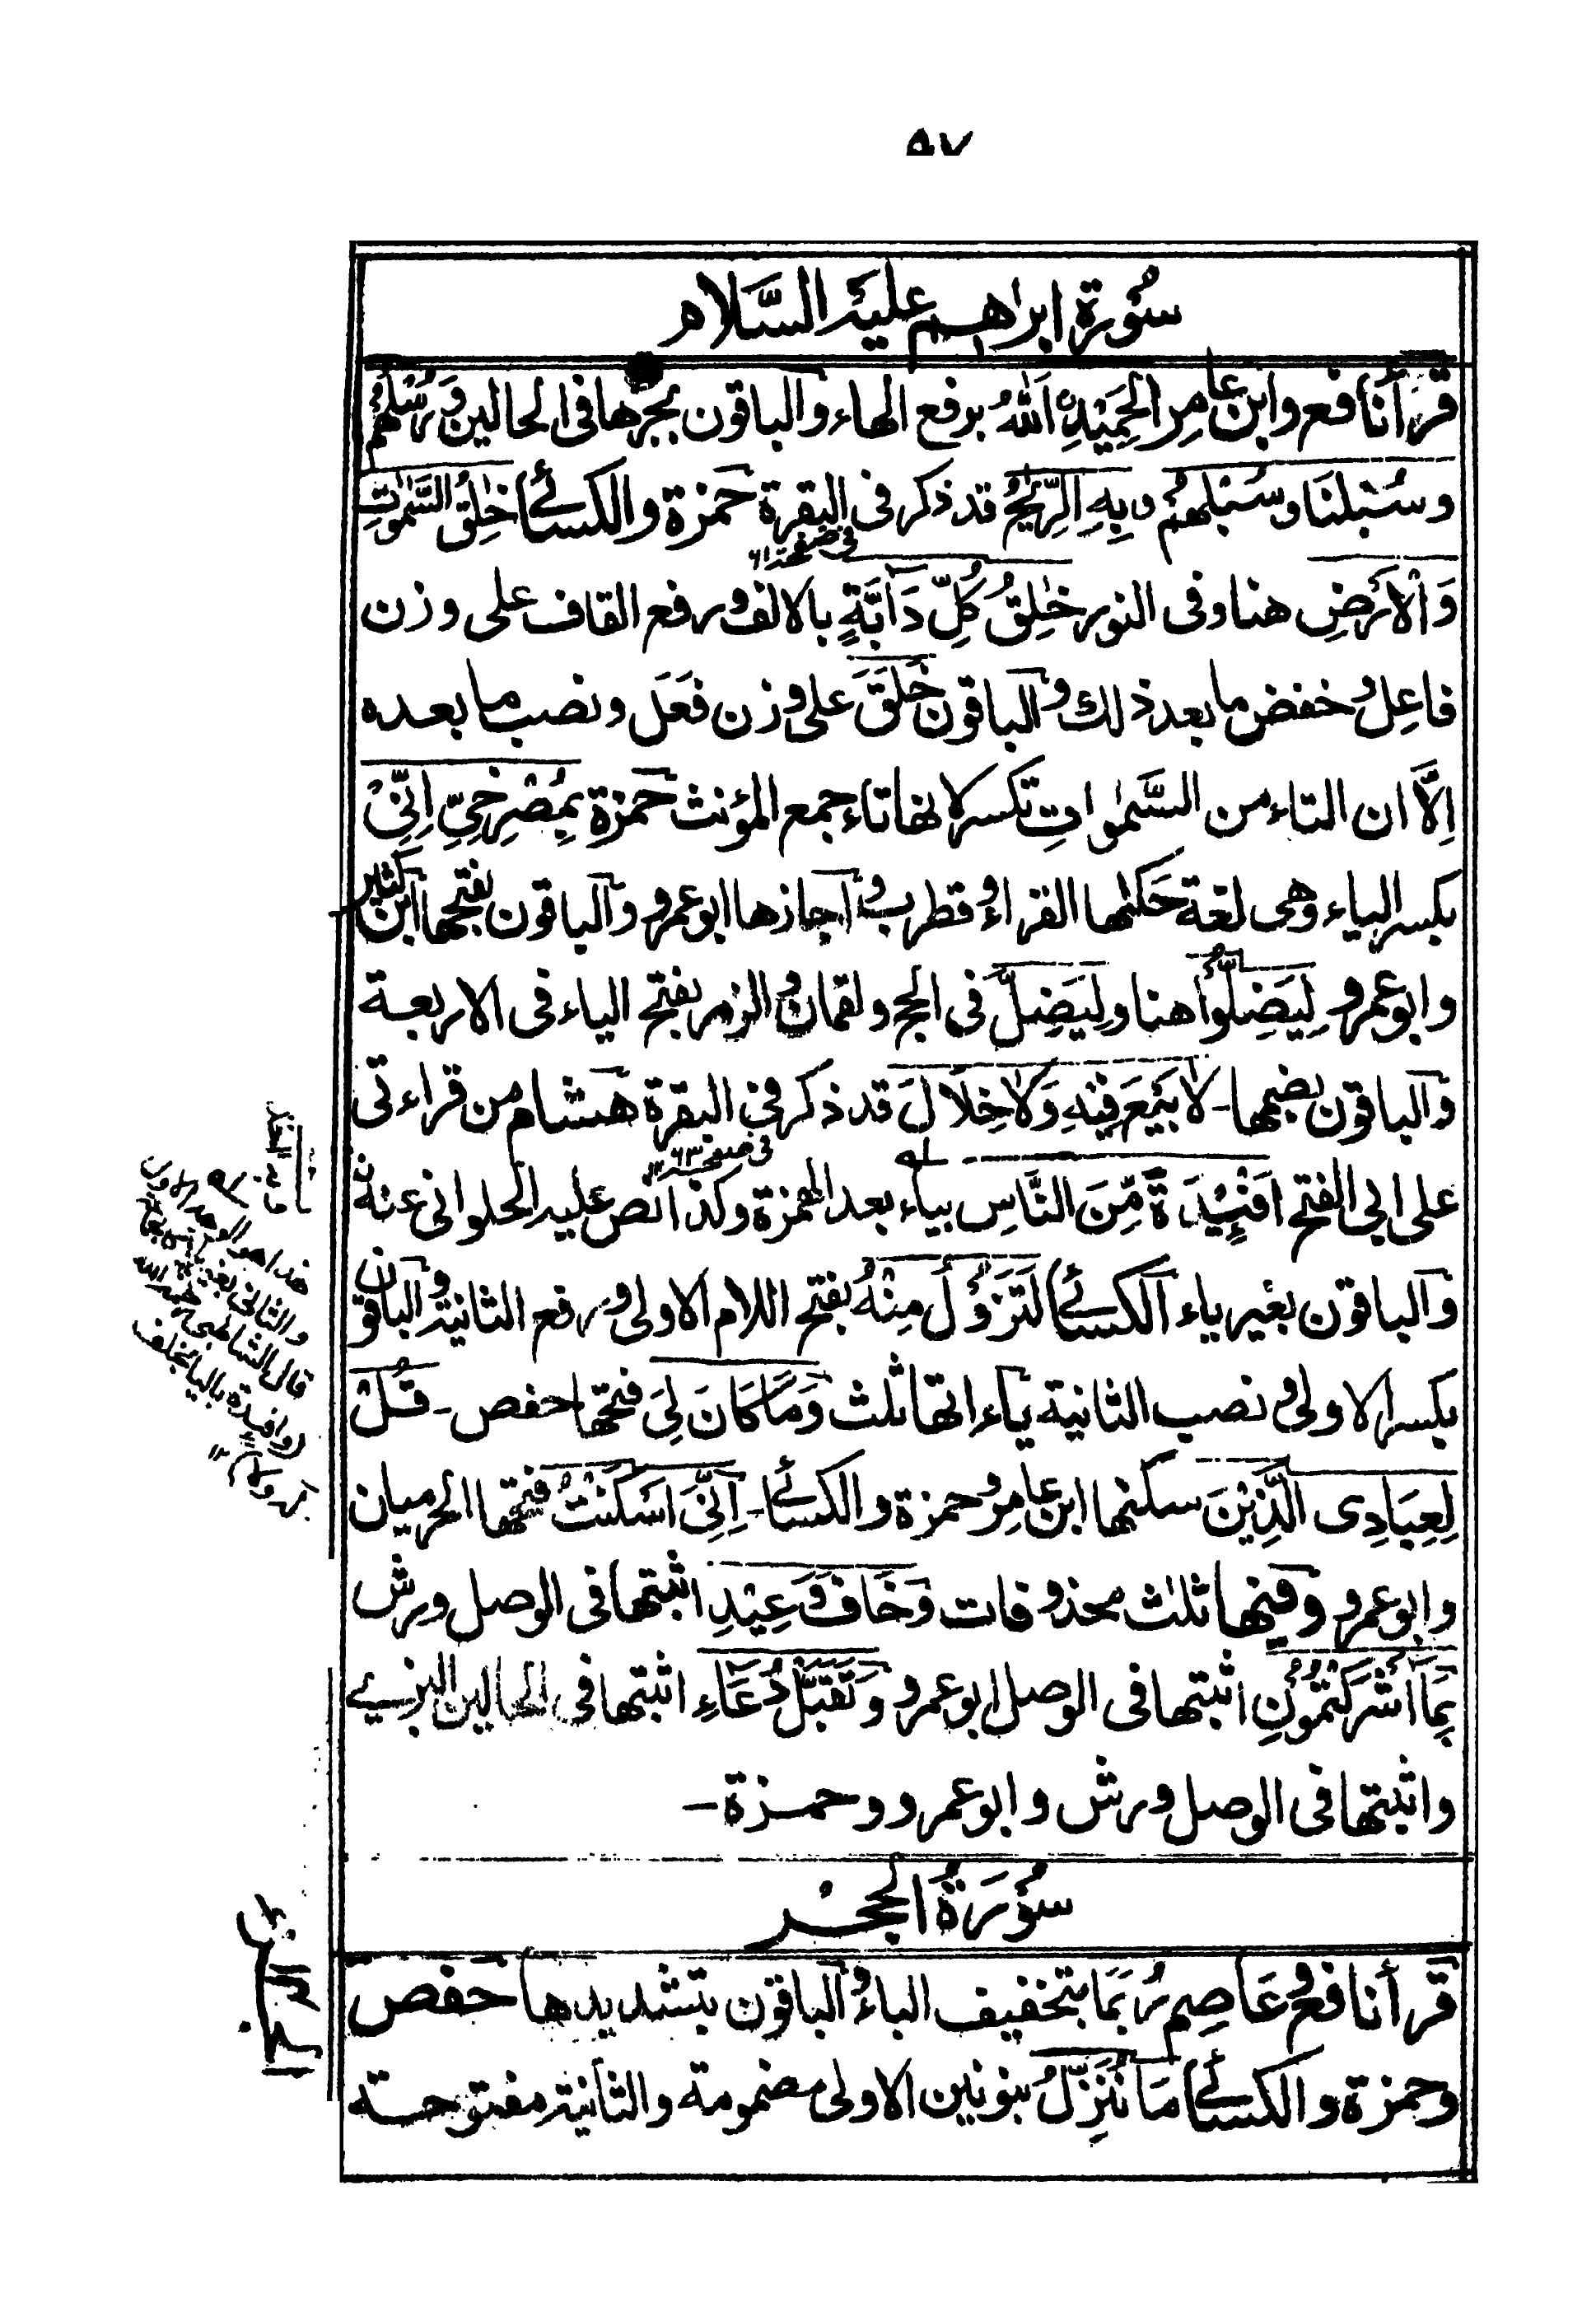 ٥٧
سُورة ابراهيم عليه السَّلام
قرأ نافع وابن عامر الْحَمِيْدِ اللّٰهُ برفع الهاء والباقون بجرها فى الحالين وَرُسُلُهُمْ
وسُبْلَنَا وسُبْلَهُمْ وبِهِ الرِّيْحُ قد ذكر فى البقرة حمزة والكسائے خٰلِقُ السَّمٰوٰتِ
فى صفحة ٦١
وَالْاَرْضِ هنا وفى النور خٰلِقُ كُلِّ دَآبَّةٍ بالالف ورفع القاف على وزن
فاعِل وخفض ما بعد ذلك والباقون خَلَقَ على وزن فَعَلَ ونصب ما بعده
اِلَّا ان التاء من السَّمٰوات تكسر لانها تاء جمع المؤنث حمزة بِمُصْرِخِيِّ اِنِّيْ
بكسر الياء وهى لغة حَكٰها الفراء وقطرب واجازها ابو عمرو والباقون بفتحها ابن كثير
وابو عمرو لِيَضِلُّوْا هنا ولِيَضِلَّ فى الحج ولقمان والزمر بفتح الياء فى الاربعة
والباقون بضمها - لَا بَيْعَ فِيْهِ وَلَا خِلَالَ قد ذكر فى البقرة هشام من قراءتى
فى صفحة ٦٣
على ابى الفتح اَفْئِيْدَةً مِّنَ النَّاسِ بياء بعد الهمزة وكذا نص عليه الحلوانى عنه
والباقون بغير ياء الكسائے لَتَزُوْلُ مِنْهُ بفتح اللام الاولى ورفع الثانية والباقون
بكسر الاولى ونصب الثانية ياءاتها ثلث وَمَا كَانَ لِيَ فتحها حفص - قُلْ
لِعِبَادِى الَّذِيْنَ سكنها ابن عامر وحمزة والكسائے - اِنِّيَ اَسْكَنْتُ فتحها الحرميان
وابو عمرو وفيها ثلٰث محذوفات وَخَافَ وَعِيْدِ اثبتها فى الوصل ورش
بِمَا اَشْرَكْتُمُوْنِ اثبتها فى الوصل ابو عمرو وَتَقَبَّلْ دُعَاءِ اثبتها فى الحالين البزے
واثبتها فى الوصل ورش وابو عمرو وحمزة -
سُوْرَةُ الحجْر
قرأ نافع وعَاصِم رُبَمَا بتخفيف الباء والباقون بتشديدها حفص
وحمزة والكسائے مَا نُنَزِّلُ بنونين الاولى مضمومة والثانية مفتوحة
هذا هو الوجه الاول
والثانى بغير
قال الشاطبى رحمه الله
وافئدة باليا بخلف